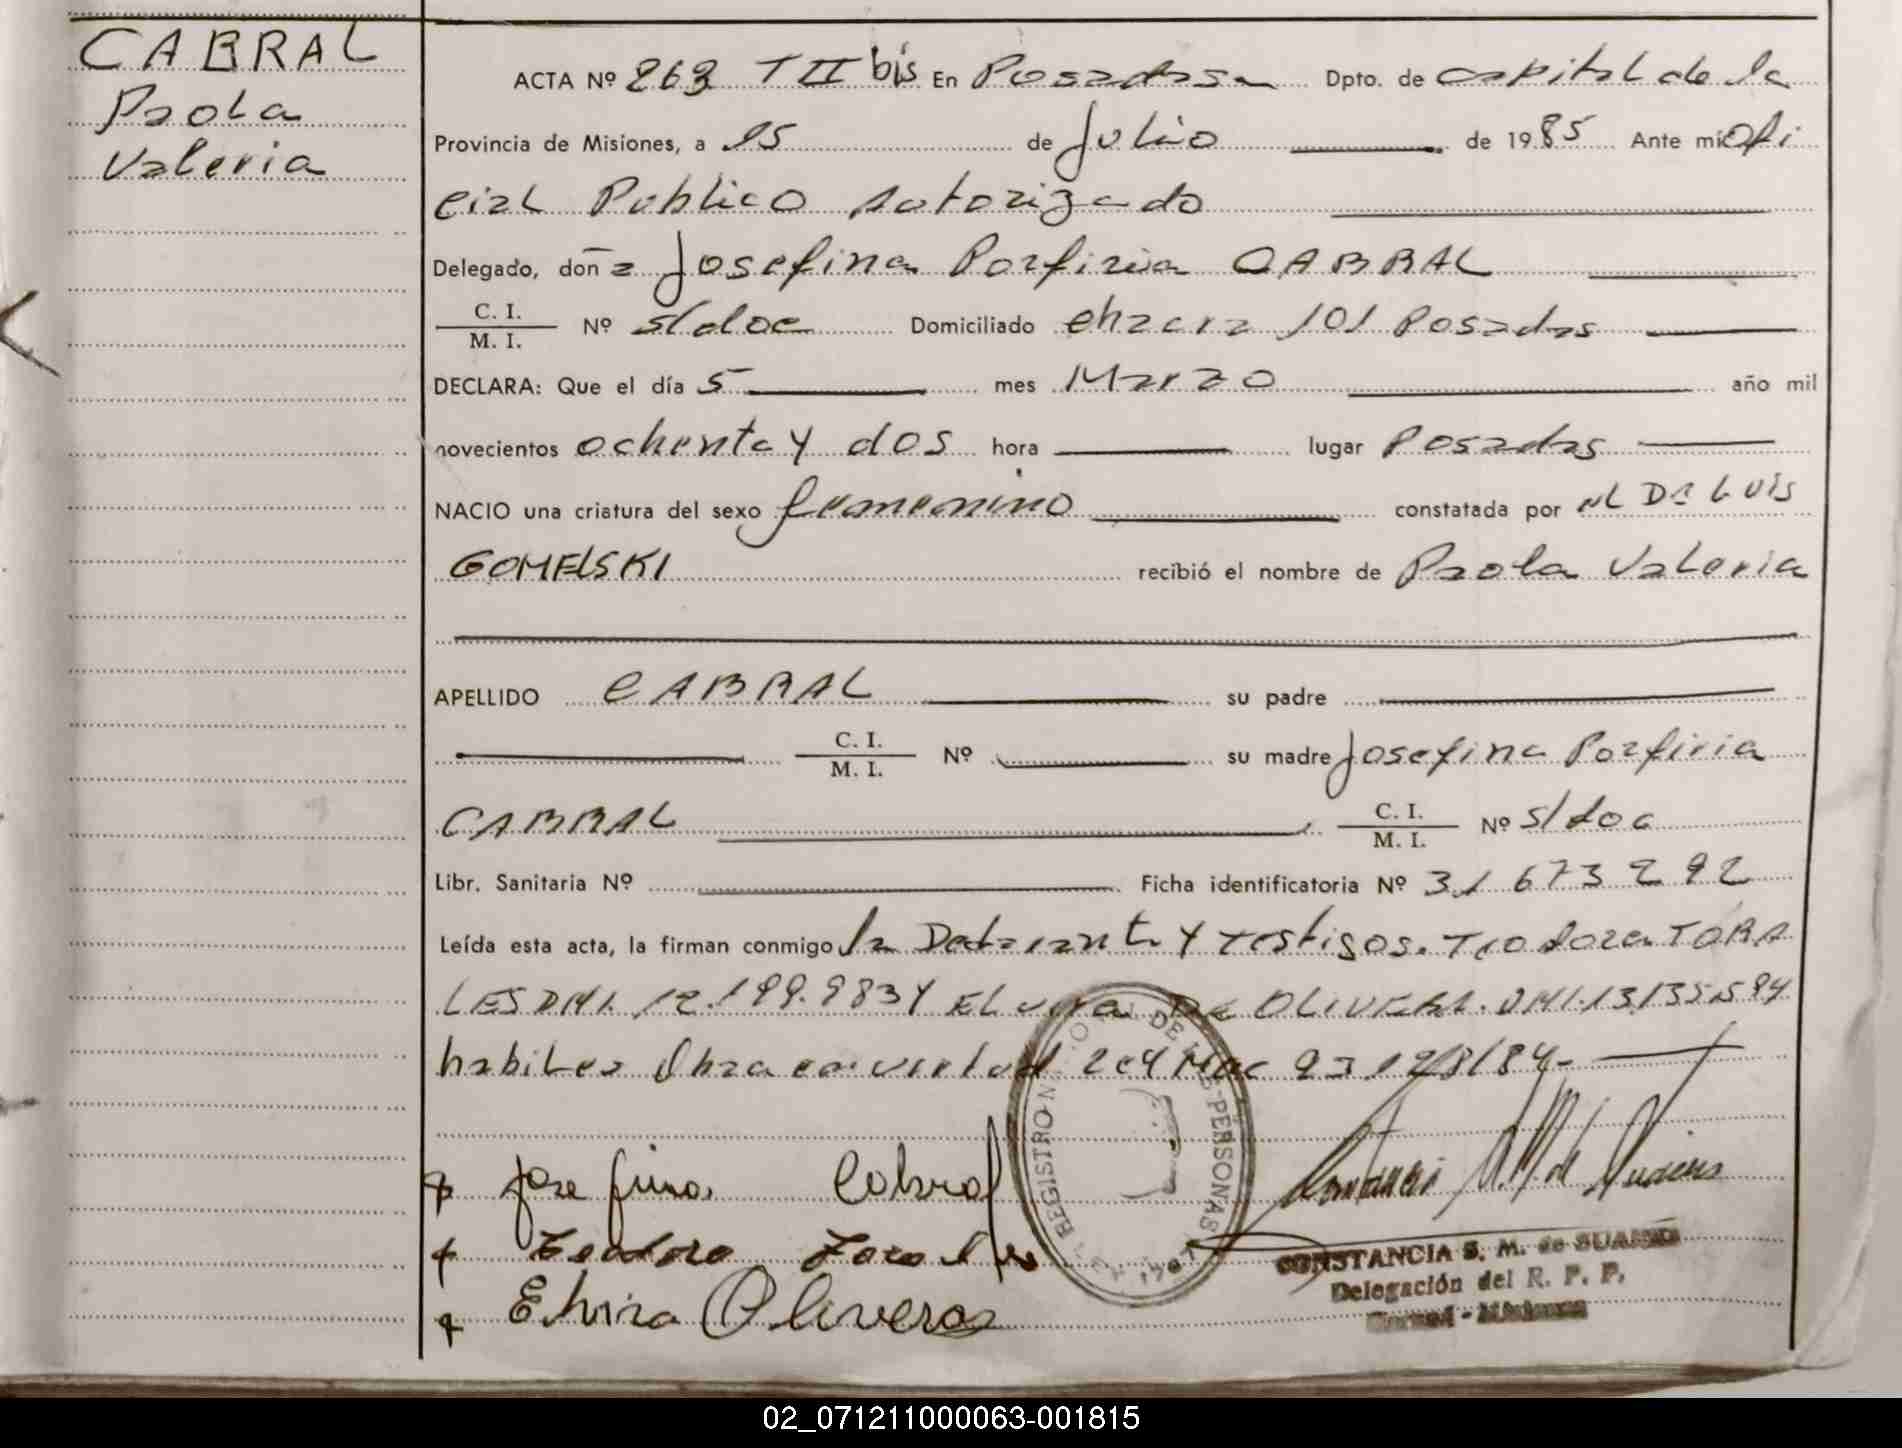 CABRAL
Paola
Valeria
ACTA Nº 263 T II bis En Posadas Dpto. de capital de la
Provincia de Misiones, a 15 de Julio de 1985 Ante mí Ofi
cial Publico Autorizado
Delegado, doña Josefina Porfiria CABRAL
C. I. / M. I. Nº s/doc Domiciliado chacra 101 Posadas
DECLARA: Que el día 5 mes Marzo año mil
novecientos ochenta y dos hora lugar Posadas
NACIO una criatura del sexo femenino constatada por Dr LUIS
GOMELSKI recibió el nombre de Paola Valeria
APELLIDO CABRAL su padre
C. I. / M. I. Nº su madre Josefina Porfiria
CABRAL C. I. / M. I. Nº s/doc
Libr. Sanitaria Nº Ficha identificatoria Nº 31 673 292
Leída esta acta, la firman conmigo la y testigos. Teodora TORA
LES DNI. 12.199.983 y Elvira DE OLIVERA. DNI.
habiles
Josefina Cabral
Teodora
Elvira Oliveros
REGISTRO DE LAS PERSONAS
CONSTANCIA S. M. de
Delegación del R. P. P.
02_071211000063-001815